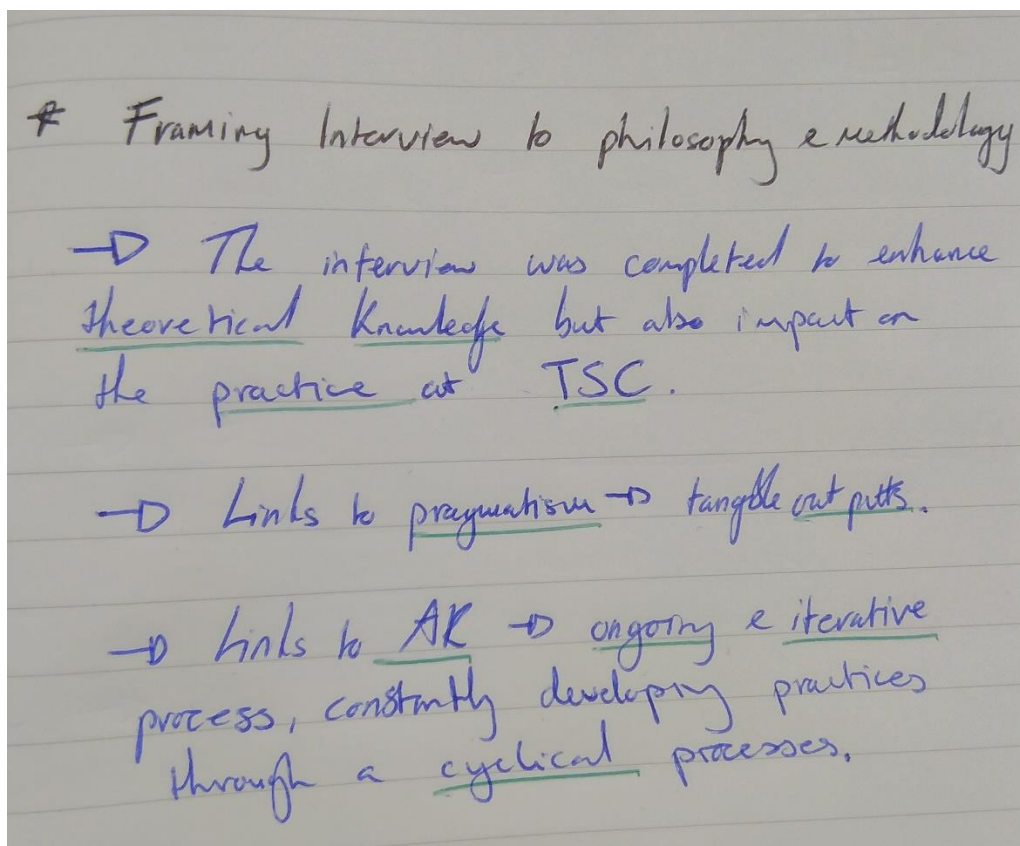 * Framing Interview to philosophy & methodology
→ The interview was completed to enhance
theoretical Knowledge but also impact on
the practice at TSC.
→ Links to pragmatism → tangible out putts.
→ Links to AR → ongoing & iterative
process, constantly developing practices
through a cyclical processes.